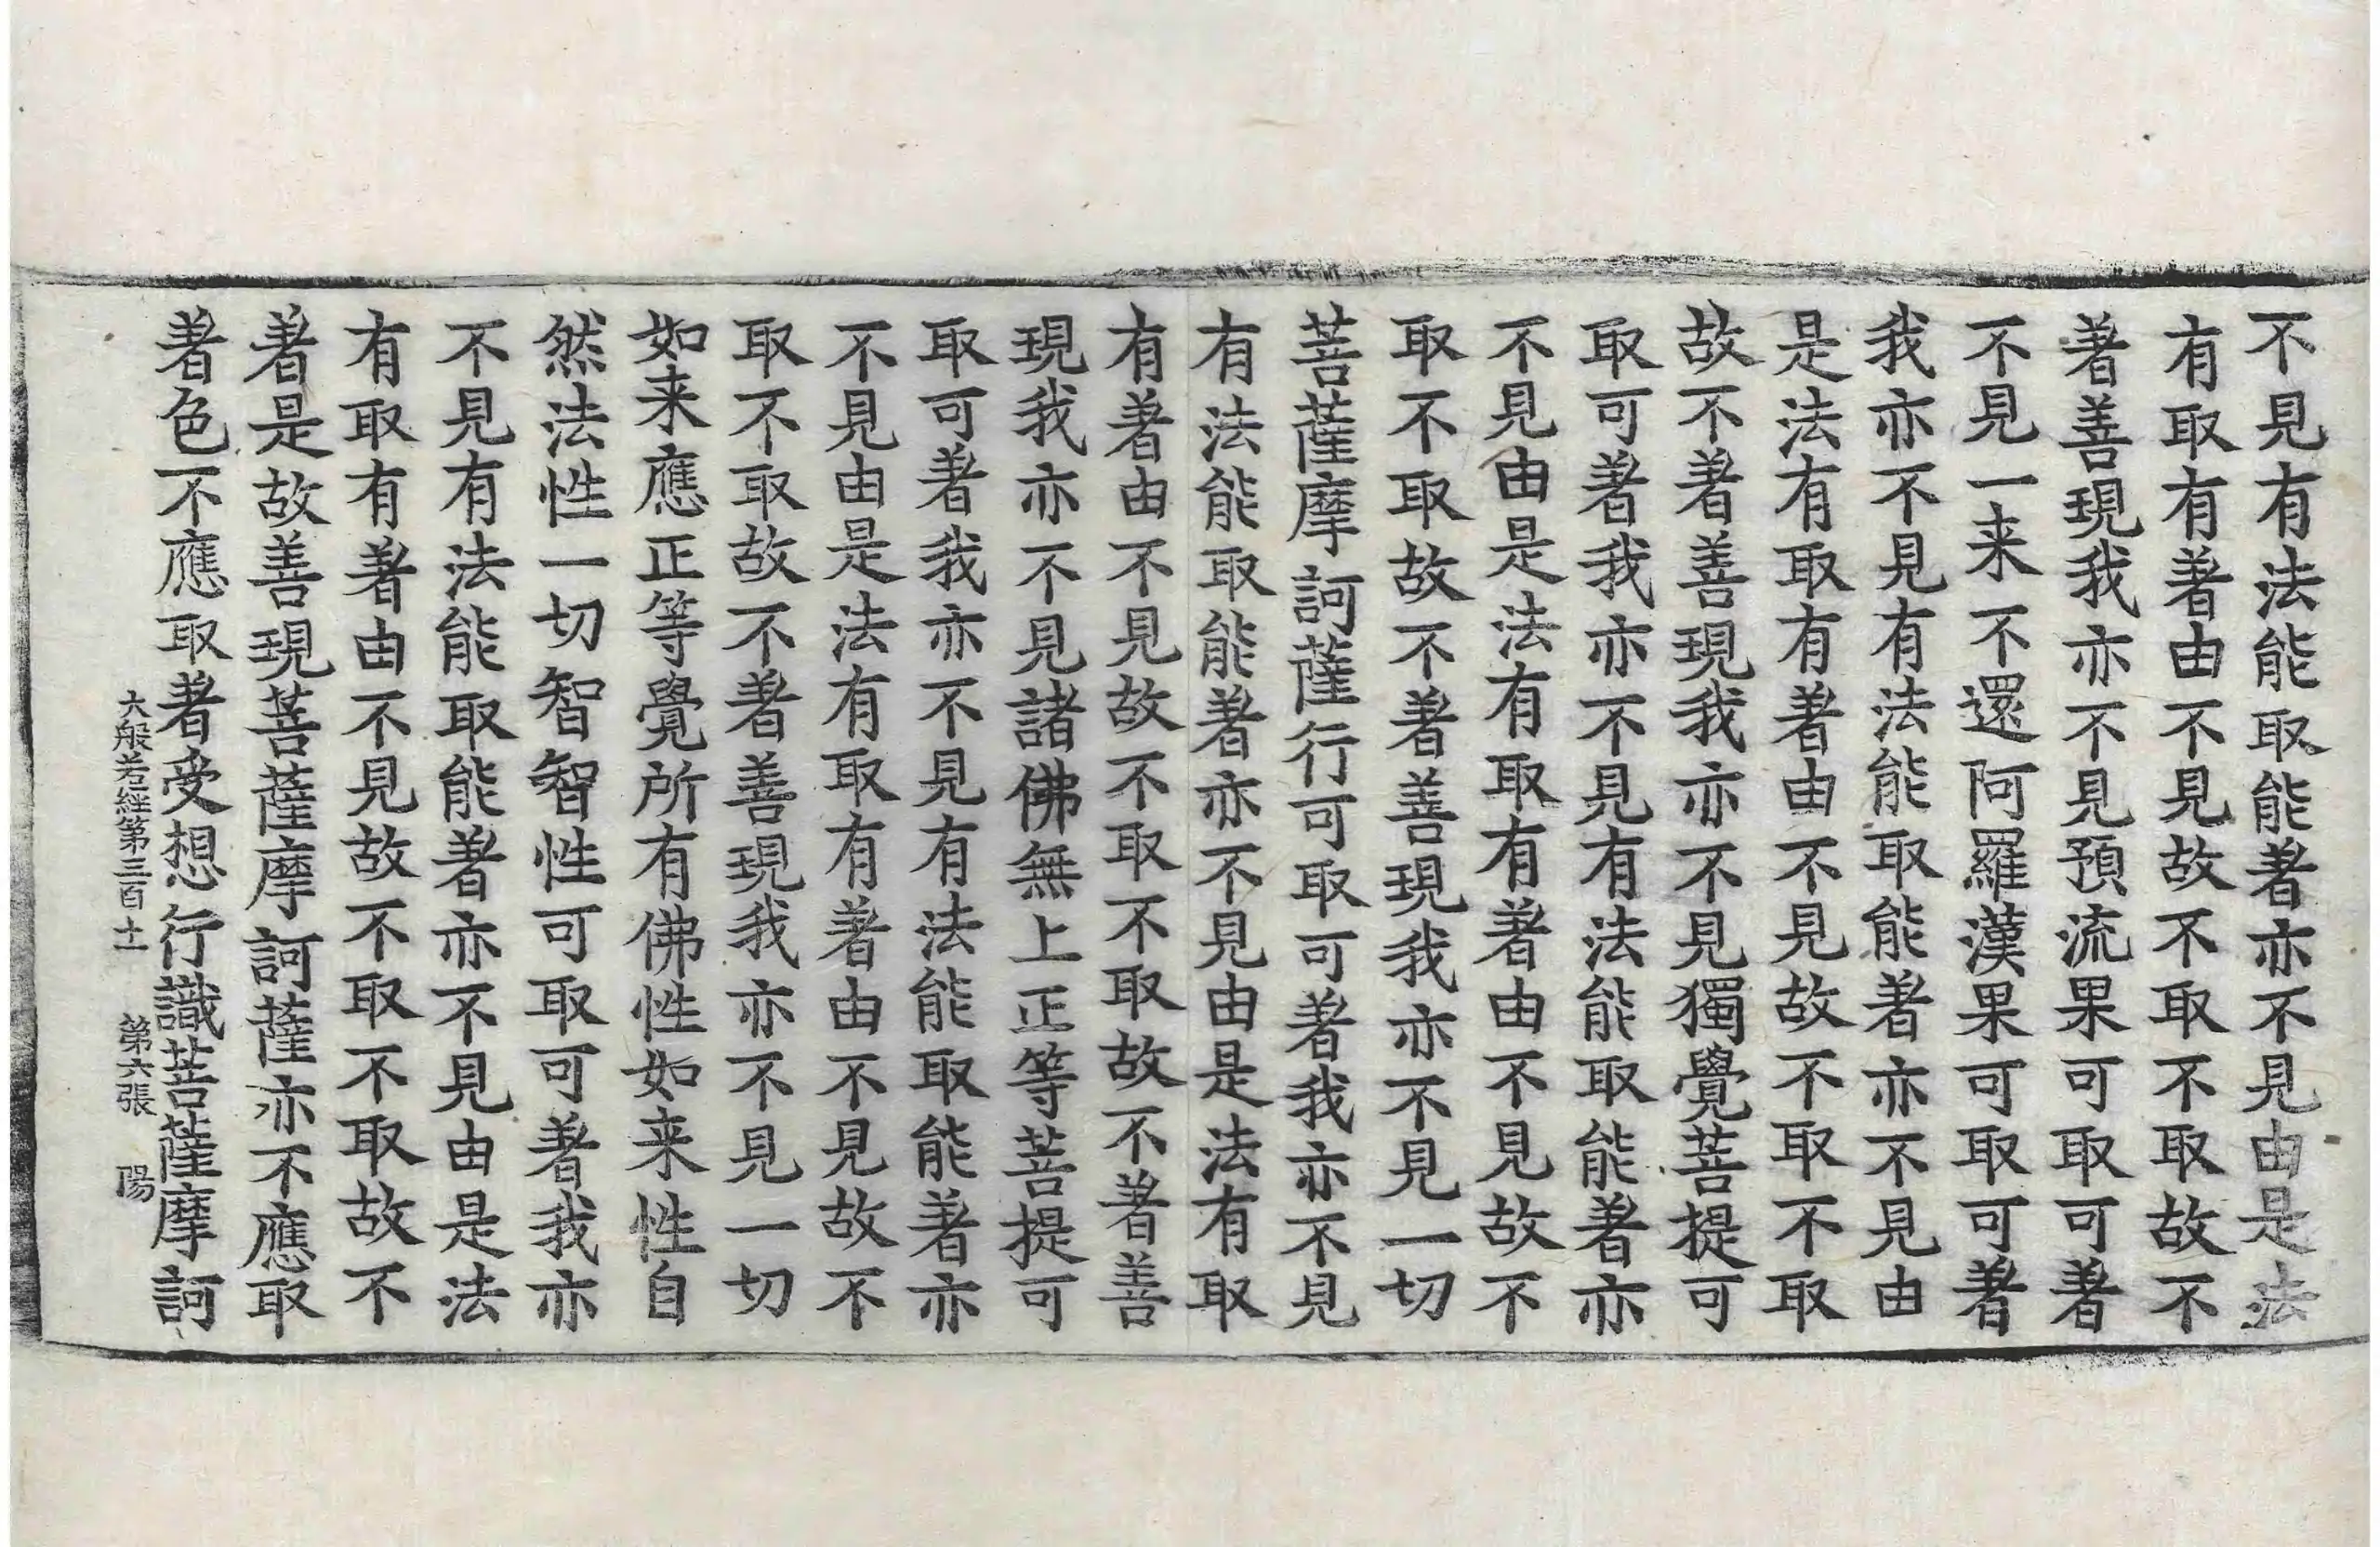 不見有法能取能著亦不見由是法
有取有著由不見故不取不取故不
著善現我亦不見預流果可取可著
不見一来不還阿羅漢果可取可著
我亦不見有法能取能著亦不見由
是法有取有著由不見故不取不取
故不著善現我亦不見獨覺菩提可
取可著我亦不見有法能取能著亦
不見由是法有取有著由不見故不
取不取故不著善現我亦不見一切
菩薩摩訶薩行可取可著我亦不見
有法能取能著亦不見由是法有取
有著由不見故不取不取故不著善
現我亦不見諸佛無上正等菩提可
取可著我亦不見有法能取能著亦
不見由是法有取有著由不見故不
取不取故不著善現我亦不見一切
如来應正等覺所有佛性如来性自
然法性一切智智性可取可著我亦
不見有法能取能著亦不見由是法
有取有著由不見故不取不取故不
著是故善現菩薩摩訶薩亦不應取
著色不應取著受想行識菩薩摩訶
大般若經第三百十一 第六張 陽